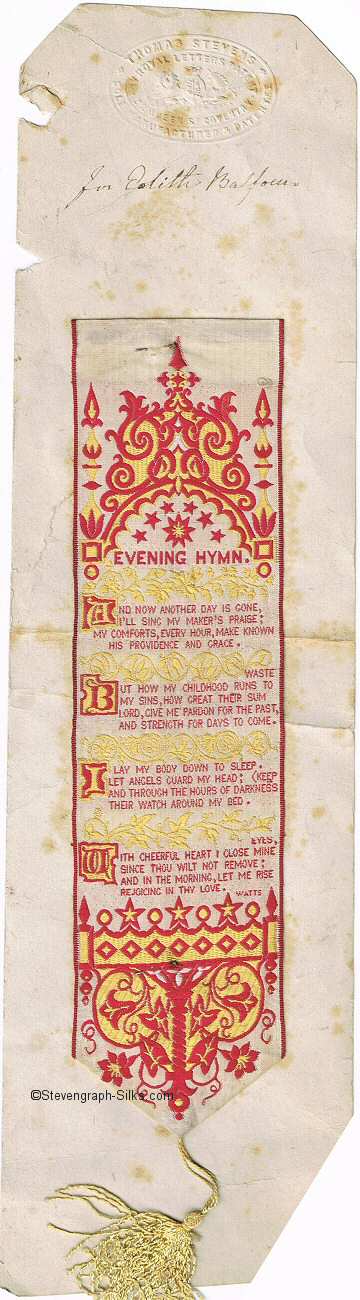 THOMAS STEVENS
ROYAL LETTERS PATENT
QUEEN ST COVENTRY
MANUFACTURER & PATENTEE
For Edith Balfour.
EVENING HYMN.
AND NOW ANOTHER DAY IS GONE,
I'LL SING MY MAKER'S PRAISE;
MY COMFORTS, EVERY HOUR, MAKE KNOWN
HIS PROVIDENCE AND GRACE.
WASTE
BUT HOW MY CHILDHOOD RUNS TO
MY SINS, HOW GREAT THEIR SUM
LORD, GIVE ME PARDON FOR THE PAST,
AND STRENGTH FOR DAYS TO COME.
I LAY MY BODY DOWN TO SLEEP.
LET ANGELS GUARD MY HEAD; (KEEP
AND THROUGH THE HOURS OF DARKNESS
THEIR WATCH AROUND MY BED.
EYES,
WITH CHEERFUL HEART I CLOSE MINE
SINCE THOU WILT NOT REMOVE;
AND IN THE MORNING, LET ME RISE
REJOICING IN THY LOVE. WATTS
©Stevengraph-Silks.com